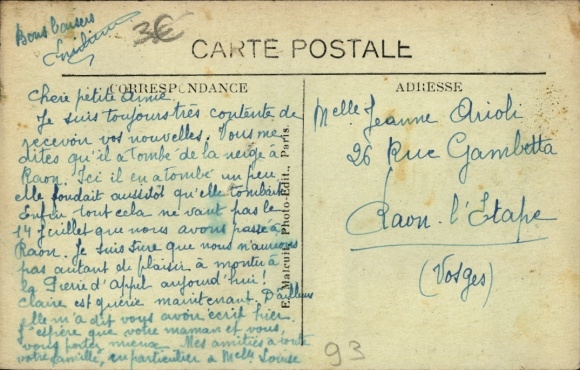 Bons baisers
3€
CARTE POSTALE
CORRESPONDANCE
ADRESSE
Chère petite Amie
Je suis toujours très contente de
recevoir vos nouvelles. Vous me
dites qu'il a tombé de la neige à
Raon. Ici il en a tombé un peu
elle fondait aussistôt qu'elle tombait.
Enfin tout cela ne vaut pas le
14 Juillet que nous avons passé à
Raon. Je suis sûre que nous n'aurions
pas autant de plaisir à monter à
la Pierre d'Appel aujourd'hui!
Claire est guérie maintenant. D'ailleurs
elle m'a dit vous avoir écrit hier.
J'espère que votre maman et vous,
vous portez mieux. Mes amitiés à toute
votre famille, en particulier à Melle Louise
E. Malcuit, Photo-Edit., Paris.
Melle Jeanne Arioli
26 Rue Gambetta
Raon-l'Etape
(Vosges)
93